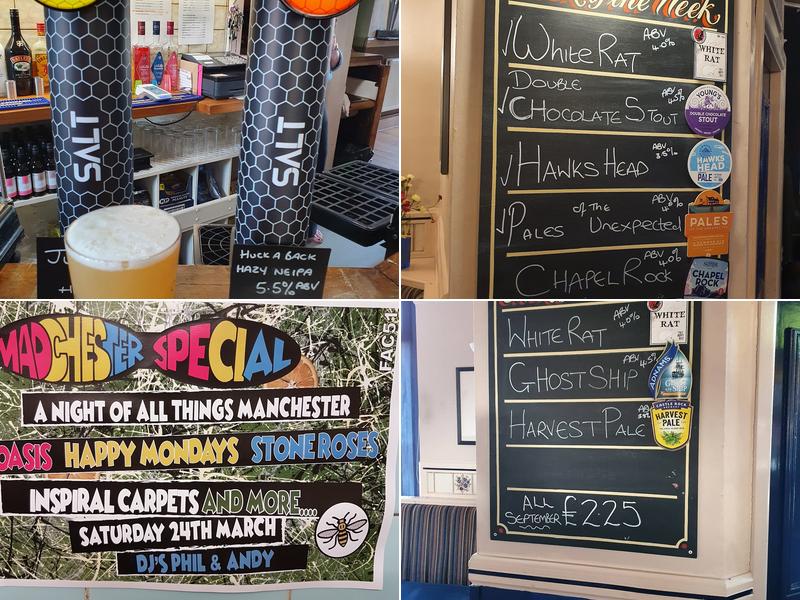 SALT
SALT
HUCK A BACK
HAZY NEIPA
5.5% ABV
of the Week
✓ WHITE RAT ABV 4.0%
WHITE RAT
DOUBLE
✓ CHOCOLATE STOUT ABV
YOUNG'S
DOUBLE CHOCOLATE
STOUT
✓ HAWKSHEAD ABV 3.5%
HAWKSHEAD
PALE
✓ PALES of THE Unexpected ABV
PALES
CHAPEL ROCK ABV 4.0%
CHAPEL ROCK
MADCHESTER SPECIAL
FAC51
A NIGHT OF ALL THINGS MANCHESTER
OASIS HAPPY MONDAYS STONE ROSES
INSPIRAL CARPETS AND MORE....
SATURDAY 24TH MARCH
DJ'S PHIL & ANDY
WHITE RAT ABV 4.0%
WHITE RAT
GHOST SHIP ABV 4.5%
ADNAMS
HARVEST PALE
CASTLE ROCK
HARVEST PALE
ALL
SEPTEMBER £2.25